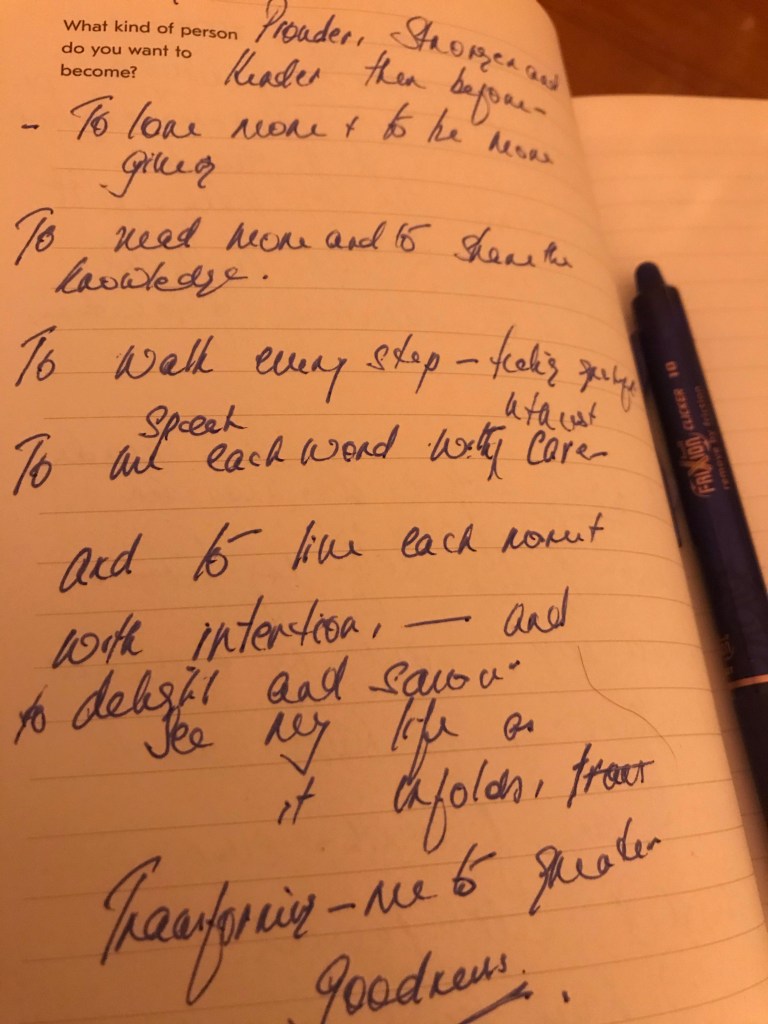 What kind of person
do you want to
become?
Prouder, Stronger and
Kinder then before -
- To love more + to be more
giving
To read more and to share the
knowledge.
To walk every step - feeling
Speak
To each word with care -
and to live each moment
with intention, — and
to delight and savour
see my life as
it unfolds,
Transforming - me to greater
goodness.
FRIXION CLICKER 10